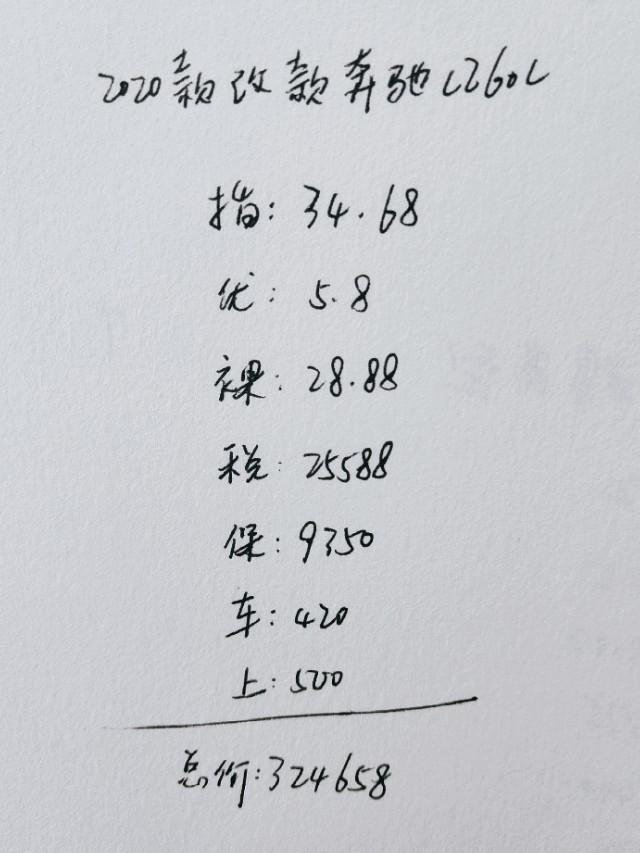 2020款改款奔驰C260L
指: 34.68
优: 5.8
裸: 28.88
税: 25588
保: 9350
车: 420
上: 500
总价: 324658